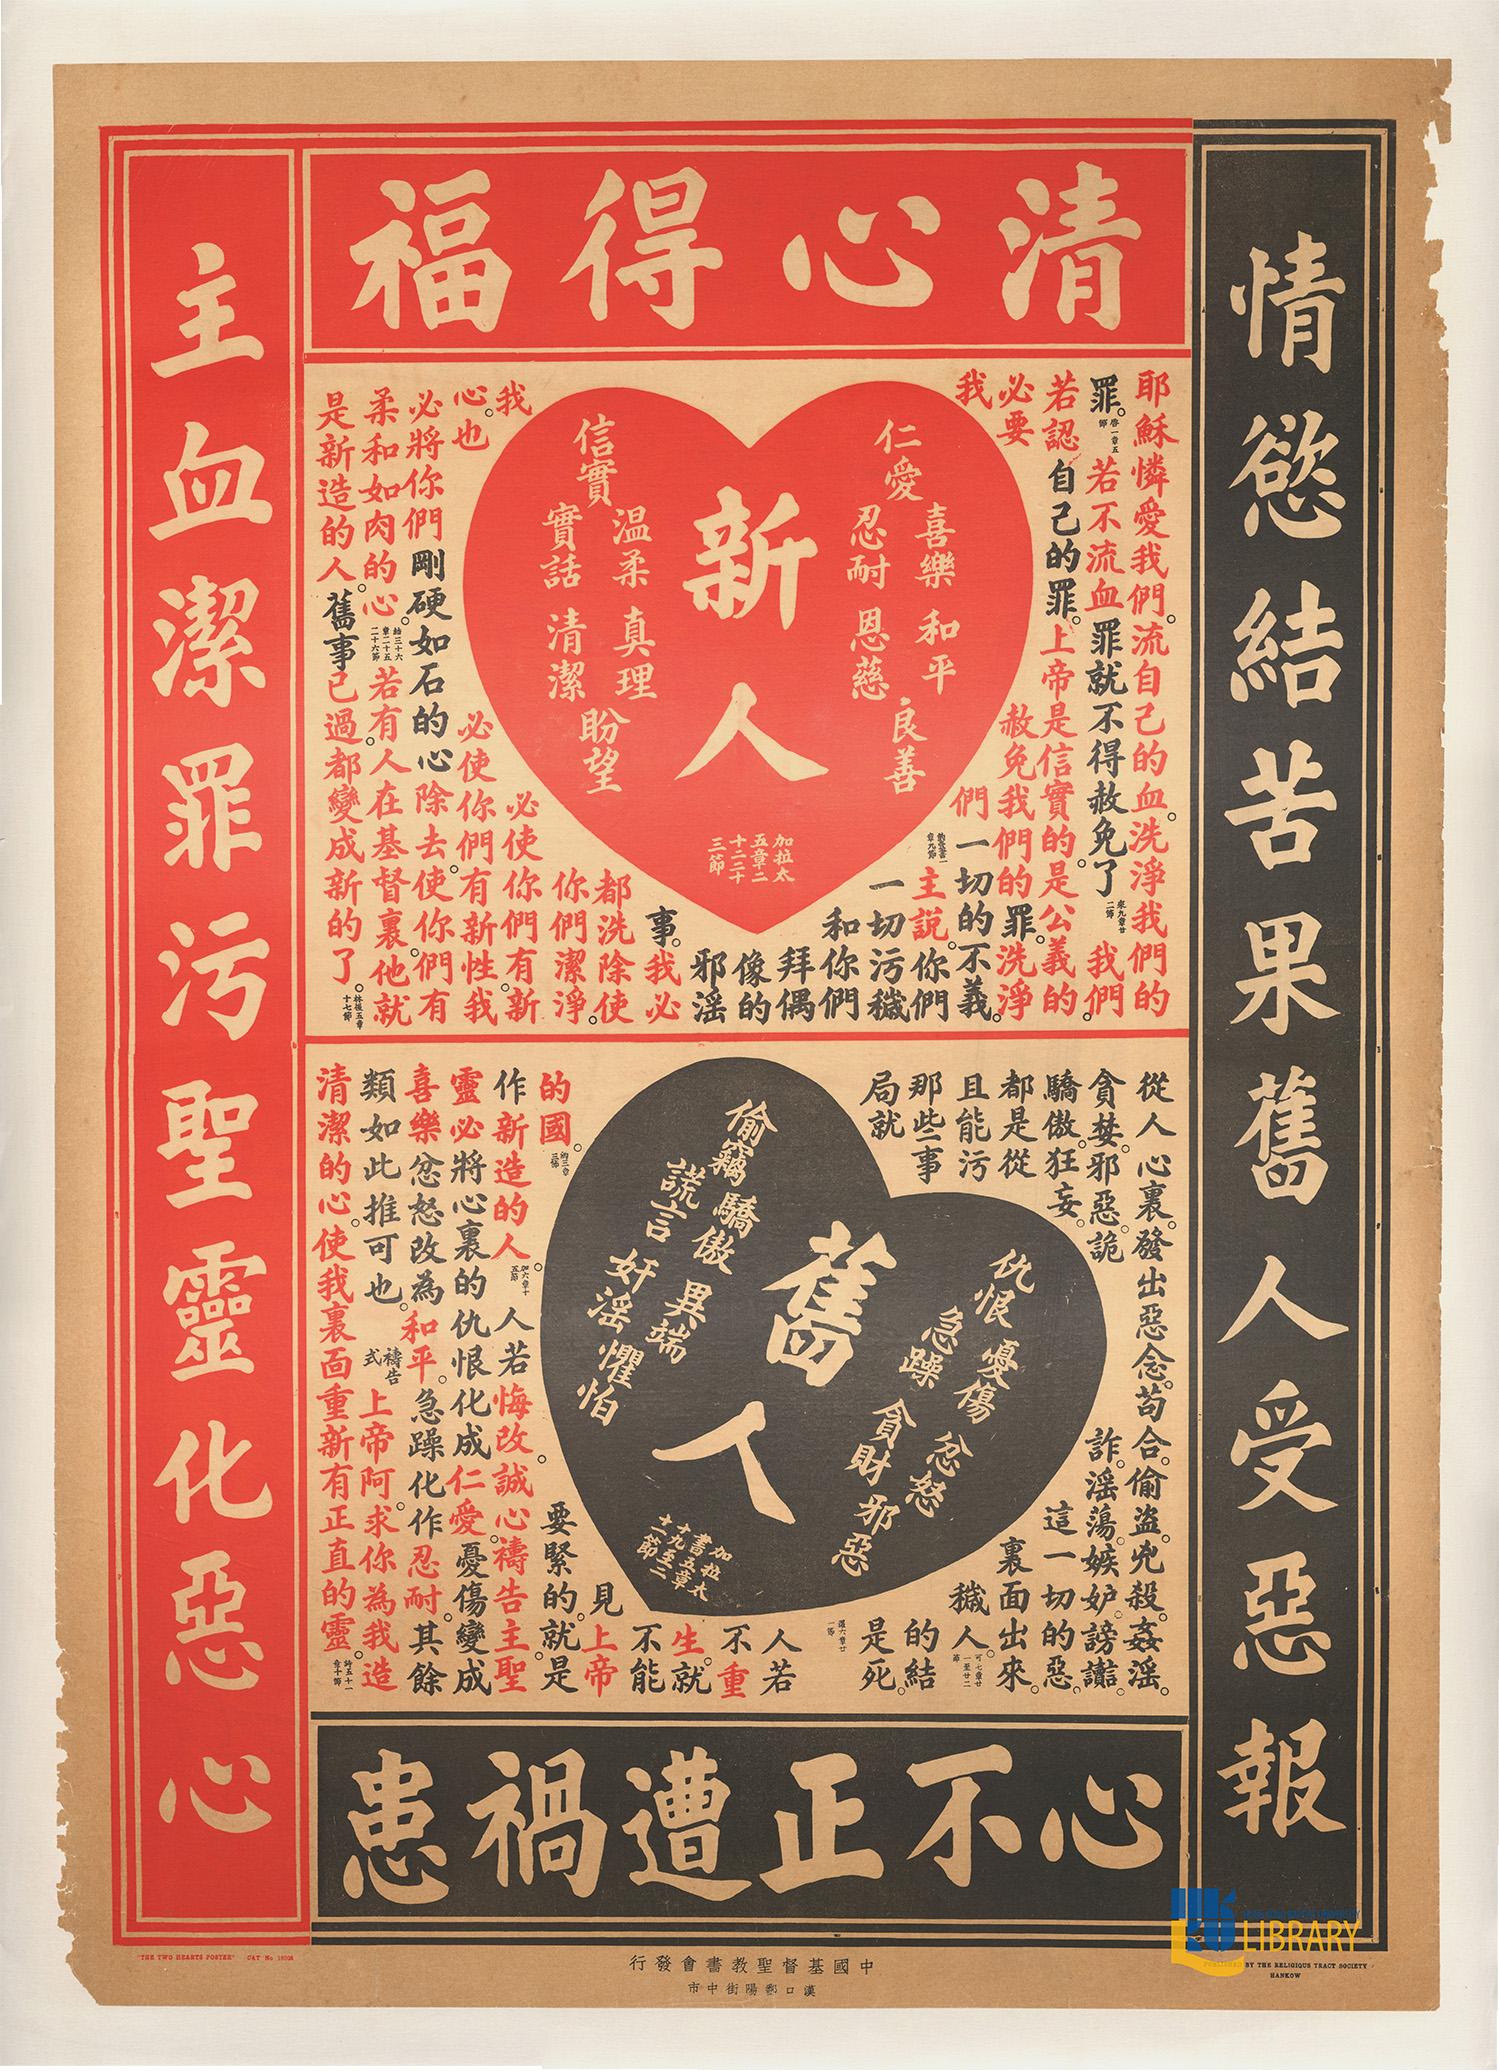 清心得福
情慾結苦果舊人受惡報
耶穌憐愛我們。流自己的血。洗淨我們的
罪。啓一章五節 若不流血罪就不得赦免了。來九章廿二節 我們
若認自己的罪。上帝是信實的。是公義的。
必要赦免我們的罪。洗淨
我們一切的不義。約壹書一章九節
主說。你們
一切污穢
和你們
拜偶
像的
邪淫
事。我必
都洗除使
你們潔淨。
我必使你們有新
心。也必使你們有新性我
必將你們剛硬如石的心除去。使你們有
柔和如肉的心。結三十六章二十五二十六節 若有人在基督裏。他就
是新造的人。舊事已過都變成新的了。林後五章十七節
新人
仁愛
喜樂
忍耐
和平
恩慈
良善
信實
温柔
實話
真理
清潔
盼望
加拉太
五章二
十二二十
三節
從人心裏。發出惡念。苟合。偷盜。兇殺。姦淫。
貪婪。邪惡。詭詐。淫蕩。嫉妒。謗讟。
驕傲。狂妄。這一切的惡。
都是從裏面出來。
且能污穢人。可七章廿一至廿二節
那些事的結
局就是死。羅六章廿一節
人若
不重
生。就
不能
見上帝
的國。約三章三節 要緊的。就是
作新造的人。加六章十五節 人若悔改。誠心禱告主聖
靈必將心裏的仇恨化成仁愛。憂傷變成
喜樂忿怒改為和平。急躁化作忍耐。其餘
類如此推可也。禱告式 上帝阿。求你為我造
清潔的心。使我裏面重新有正直的靈。詩五十一章十節
舊人
仇恨 憂傷 忿怒
急躁 貪財 邪惡
偷竊 驕傲 異端
謊言 奸淫 懼怕
加拉太
書五章
十九至二
十一節
主血潔罪污聖靈化惡心
心不正遭禍患
"THE TWO HEARTS POSTER"
中國基督聖教書會發行
漢口鄱陽街中市
PUBLISHED BY THE RELIGIOUS TRACT SOCIETY
HANKOW
LIBRARY